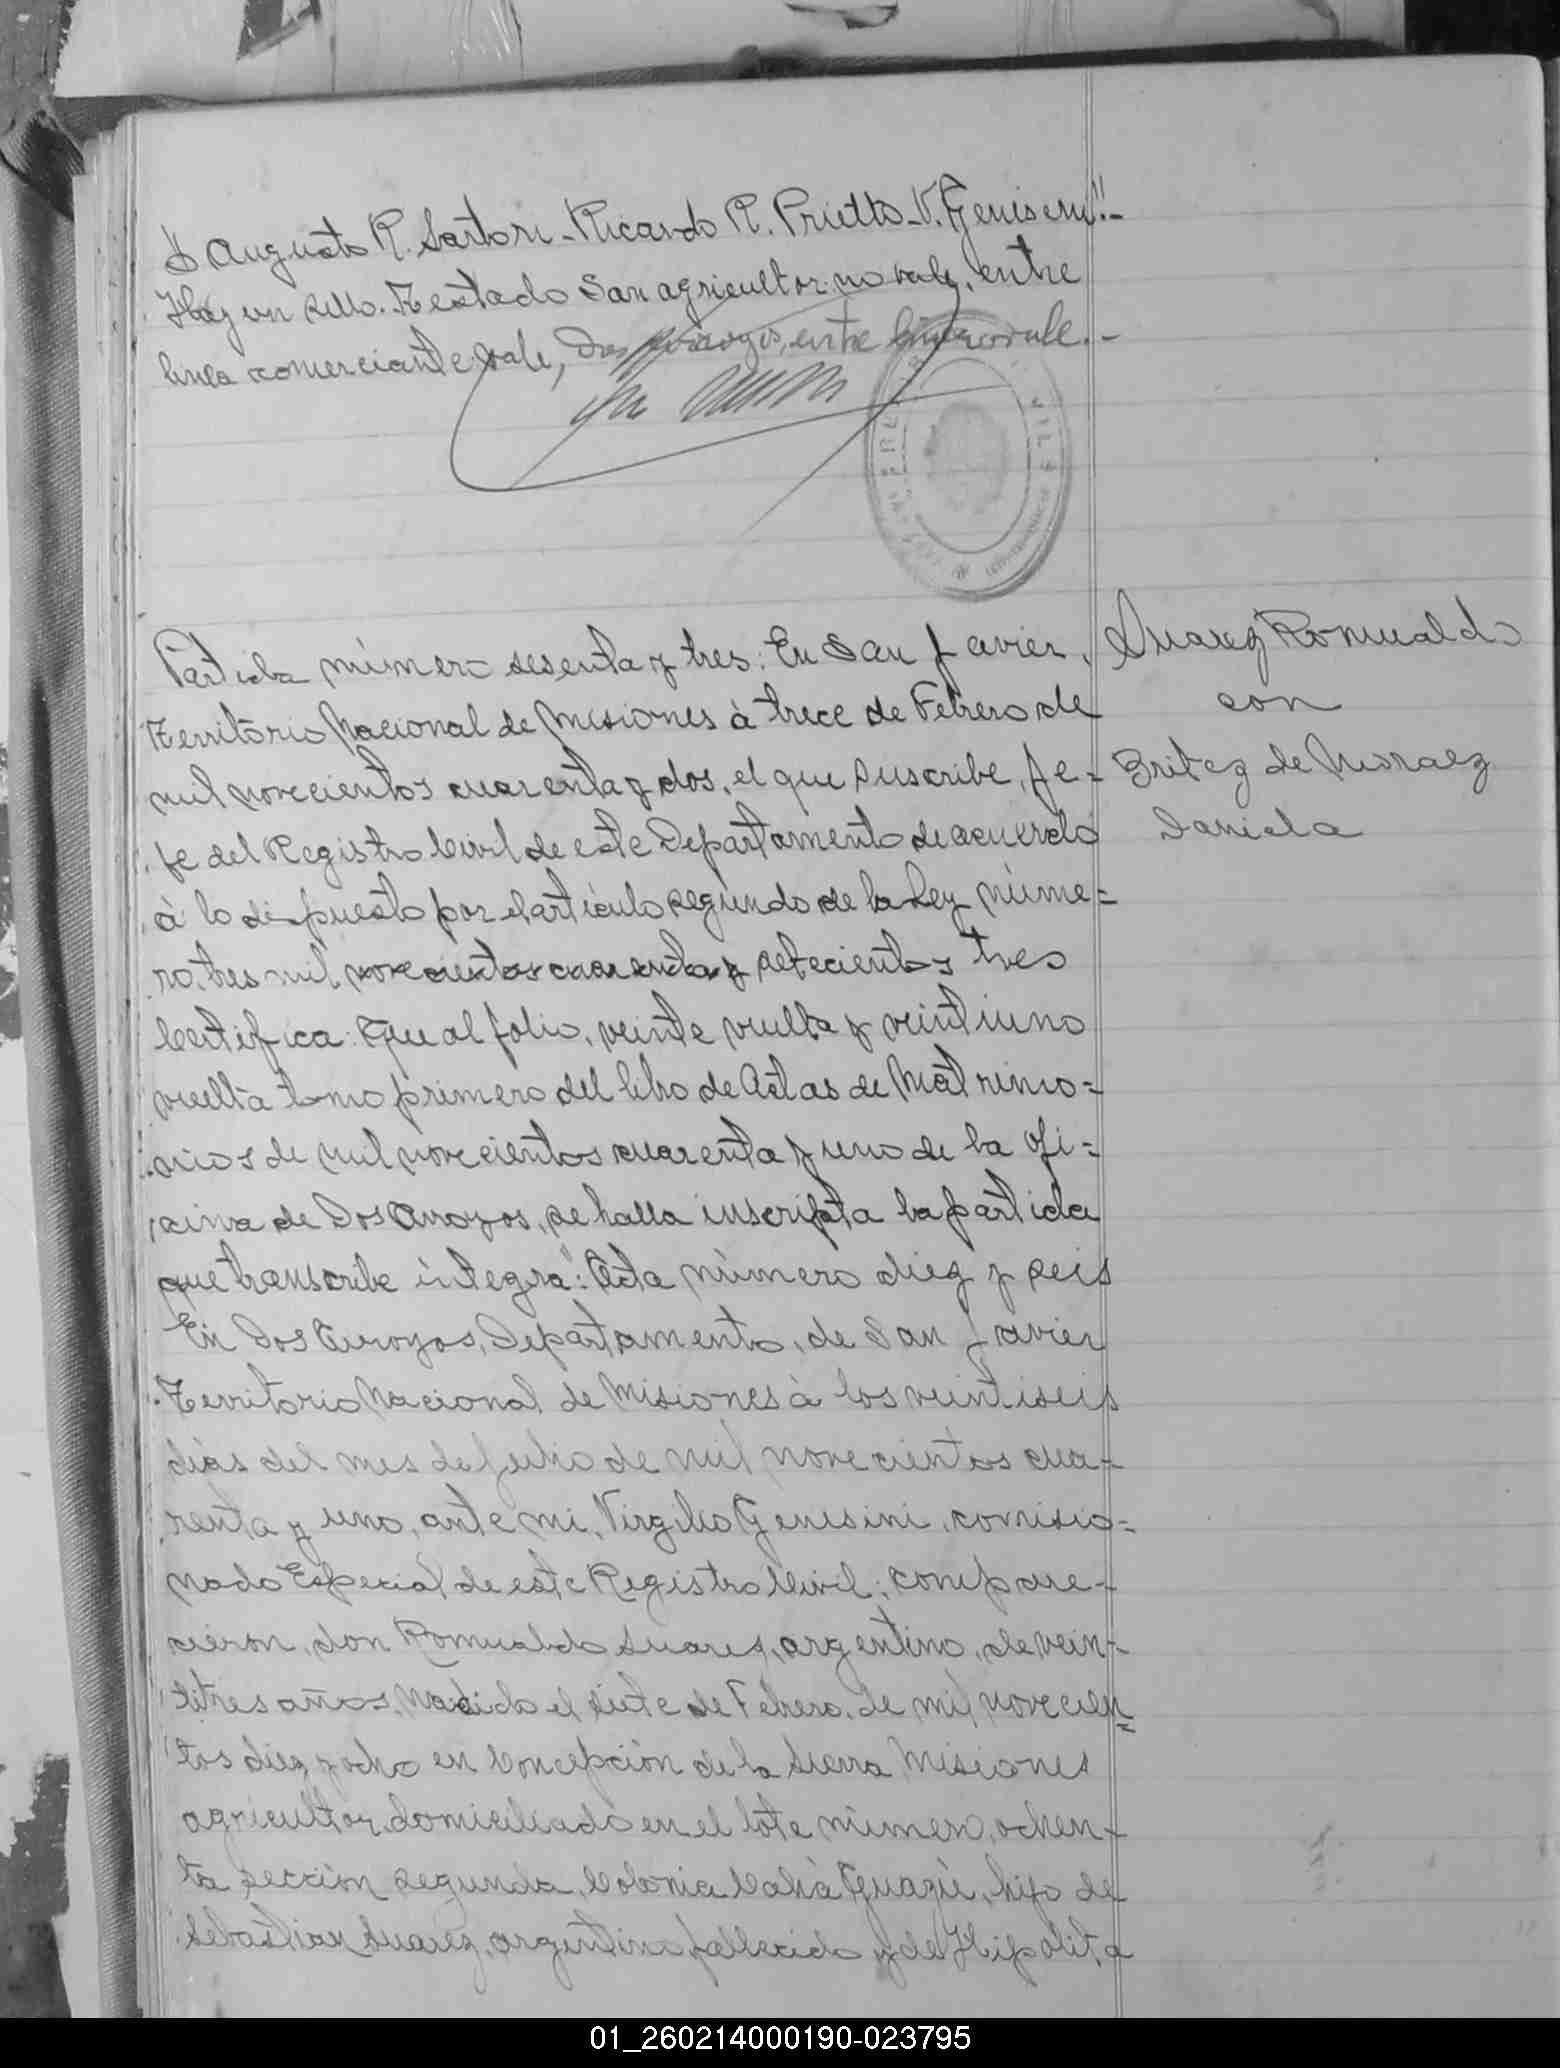 Augusto R. Sartori - Ricardo R. Prietto - V. Genisini".-
Hay un sello. Testado San agricultor: no vale, entre
linea comerciante: vale, Dos Arroyos, entre linea vale.-
Partida número sesenta y tres: En San Javier,
Territorio Nacional de Misiones à trece de Febrero de
mil novecientos cuarenta y dos, el que suscribe, Je=
fe del Registro Civil de este Departamento de acuerdo
à lo dispuesto por el artículo segundo de la Ley núme=
ro, tres mil novecientos cuarenta y setecientos tres
Certifica: Que al folio, veinte vuelta y veintiuno
vuelta tomo primero del libro de Actas de Matrimo=
nios de mil novecientos cuarenta y uno de la ofi=
cina de Dos Arroyos, se halla inscripta la partida
que transcribe integra": Acta número diez y seis
En Dos Arroyos, Departamento, de San Javier
Territorio Nacional de Misiones à los veintiseis
dias del mes de Julio de mil novecientos cua-
renta y uno, ante mi, Virgilio Genisini, comisio=
nado Especial de este Registro Civil; compare-
cieron, don Romualdo Suares, argentino, de vein-
titres años, Nacido el siete de Febrero, de mil novecien=
tos diez y ocho en Concepción de la Sierra Misiones
agricultor, domiciliado en el lote número, ochen-
ta sección segunda, Colonia Guazú, hijo de
Sebastian Suarez, argentino, fallecido y de Hipolita
Suarez Romualdo
con
Britez de Moraez
Daniela
01_260214000190-023795